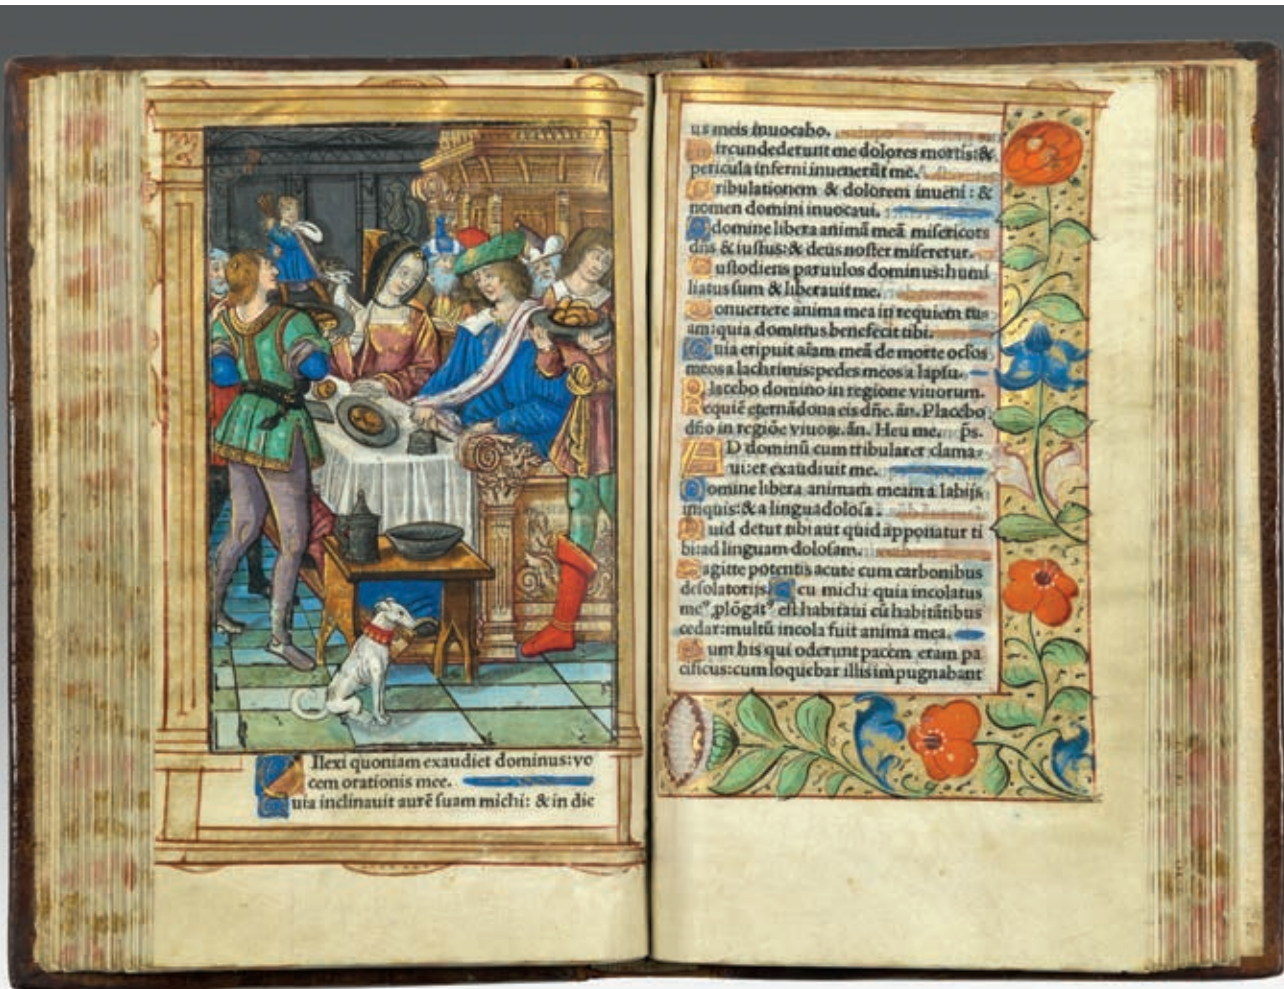 Ilexi quoniam exaudiet dominus: vo
cem orationis mee.
Quia inclinauit aurē suam michi: & in die
us meis inuocabo.
Circundederunt me dolores mortis: &
pericula inferni inuenerūt me.
Tribulationem & dolorem inueni: &
nomen domini inuocaui.
O domine libera animā meā misericors
dn̄s & iustus: & deus noster miseretur.
Custodiens paruulos dominus: humi
liatus sum & liberauit me.
Conuertere anima mea in requiem tu-
am: quia dominus benefecit tibi.
Quia eripuit aīam meā de morte ocl̄os
meos a lachrimis: pedes meos a lapsu.
Placebo domino in regione viuorum.
Requiē eternā dona eis dn̄e. ān. Placebo
dn̄o in regiōe viuoꝝ. ān. Heu me. p̄s.
AD dominū cum tribularer clama-
ui: et exaudiuit me.
Domine libera animam meam a labijs
iniquis: & a lingua dolosa.
Quid detur tibi aut quid apponatur ti
bi ad linguam dolosam.
Sagitte potentis acute cum carbonibus
desolatorijs. Heu michi quia incolatus
meꝰ plōgatꝰ est habitaui cū habitātibus
cedar: multū incola fuit anima mea.
Cum his qui oderunt pacem eram pa
cificus: cum loquebar illis impugnabant